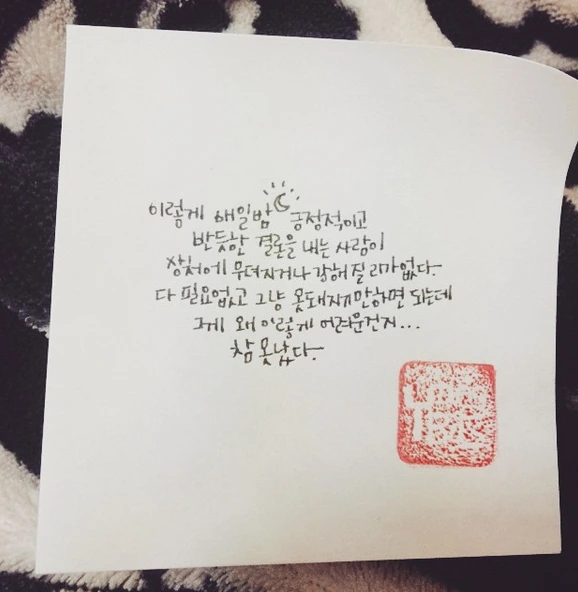 이렇게 매일밤 긍정적이고
반듯한 결론을 내는 사람이
상처에 무뎌지거나 강해질 리가없다.
다 필요없고 그냥 못돼지기만하면 되는데
그게 왜 이렇게 어려운건지...
참 못났다.